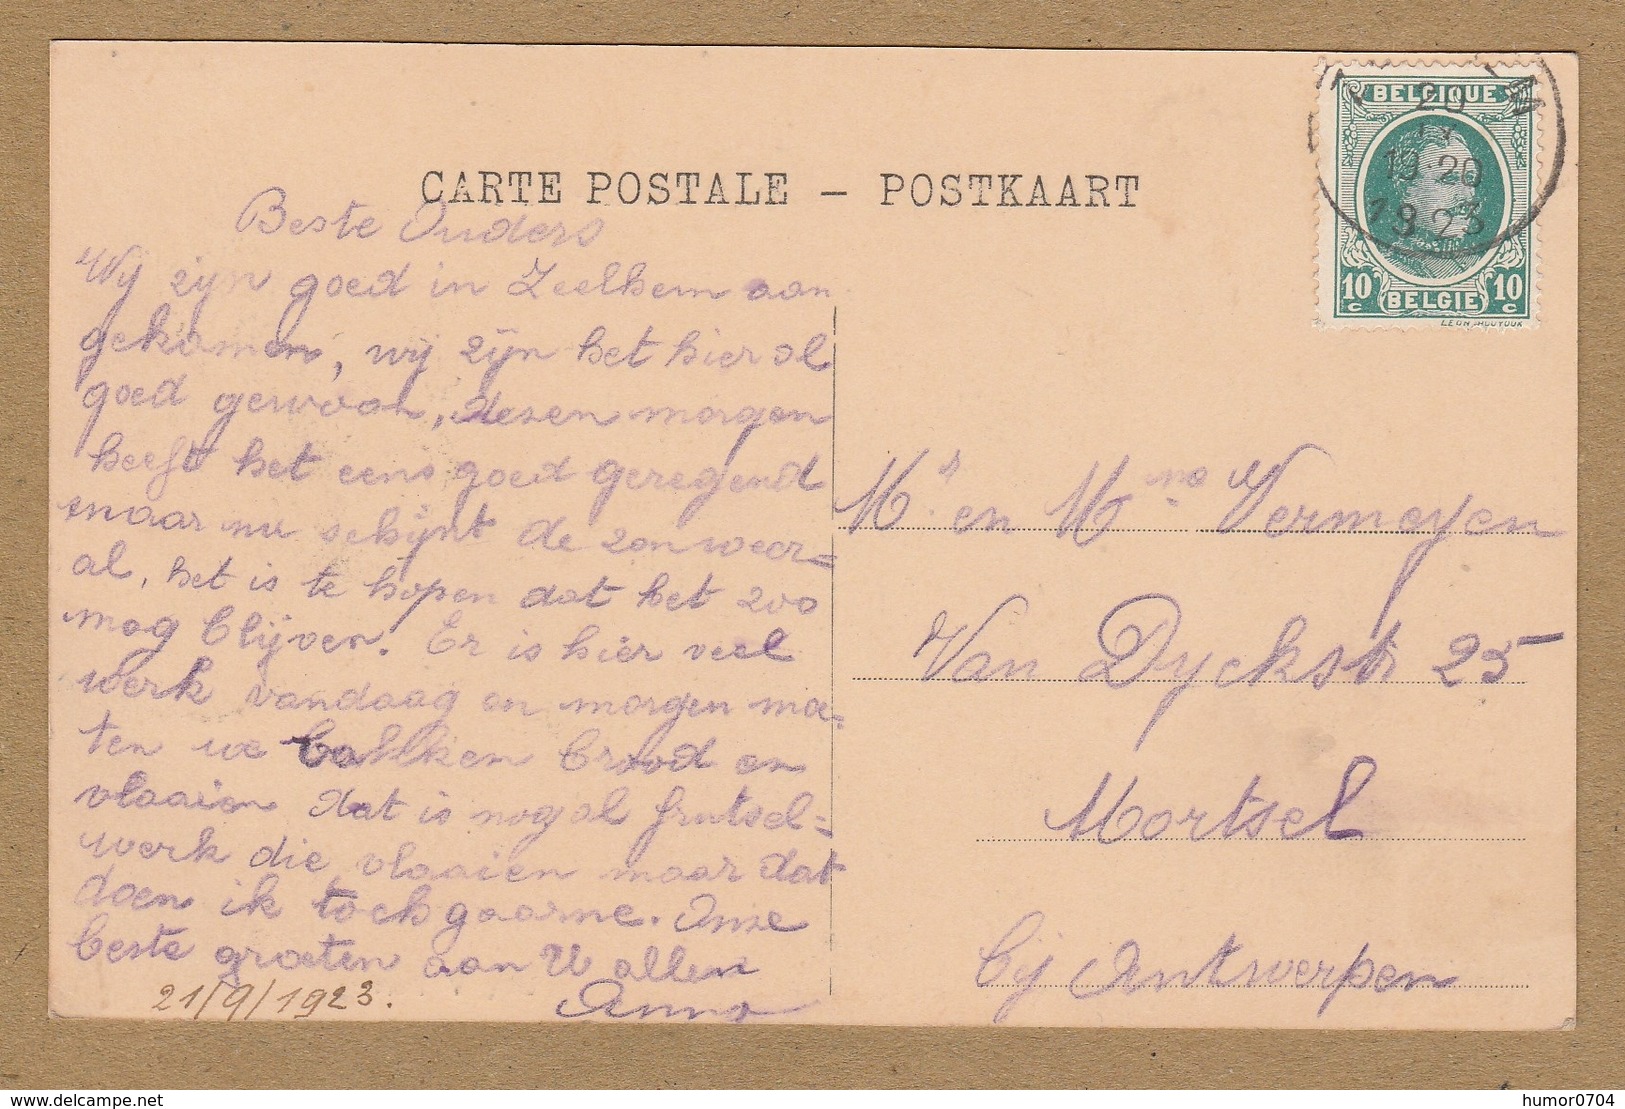 CARTE POSTALE – POSTKAART
BELGIQUE
20
IX
19-20
1923
10 c BELGIE 10 c
Beste Ouders
Wij zijn goed in Zeelhem aan
gekomen, wij zijn het hier al
goed gewoon, dezen morgen
heeft het eens goed geregend
maar nu schijnt de zon weer=
al, het is te hopen dat het zoo
mag blijven. Er is hier veel
werk vandaag en morgen moe=
ten we bakken brood en
vlaaien dat is nog al frutsel=
werk die vlaaien maar dat
doen ik toch gaarne. Onze
beste groeten aan U allen
Anna
21/9/1923.
Mr. en Mme Vermeyen
Van Dyckstr 25
Mortsel
bij Antwerpen
delcampe.net
humor0704